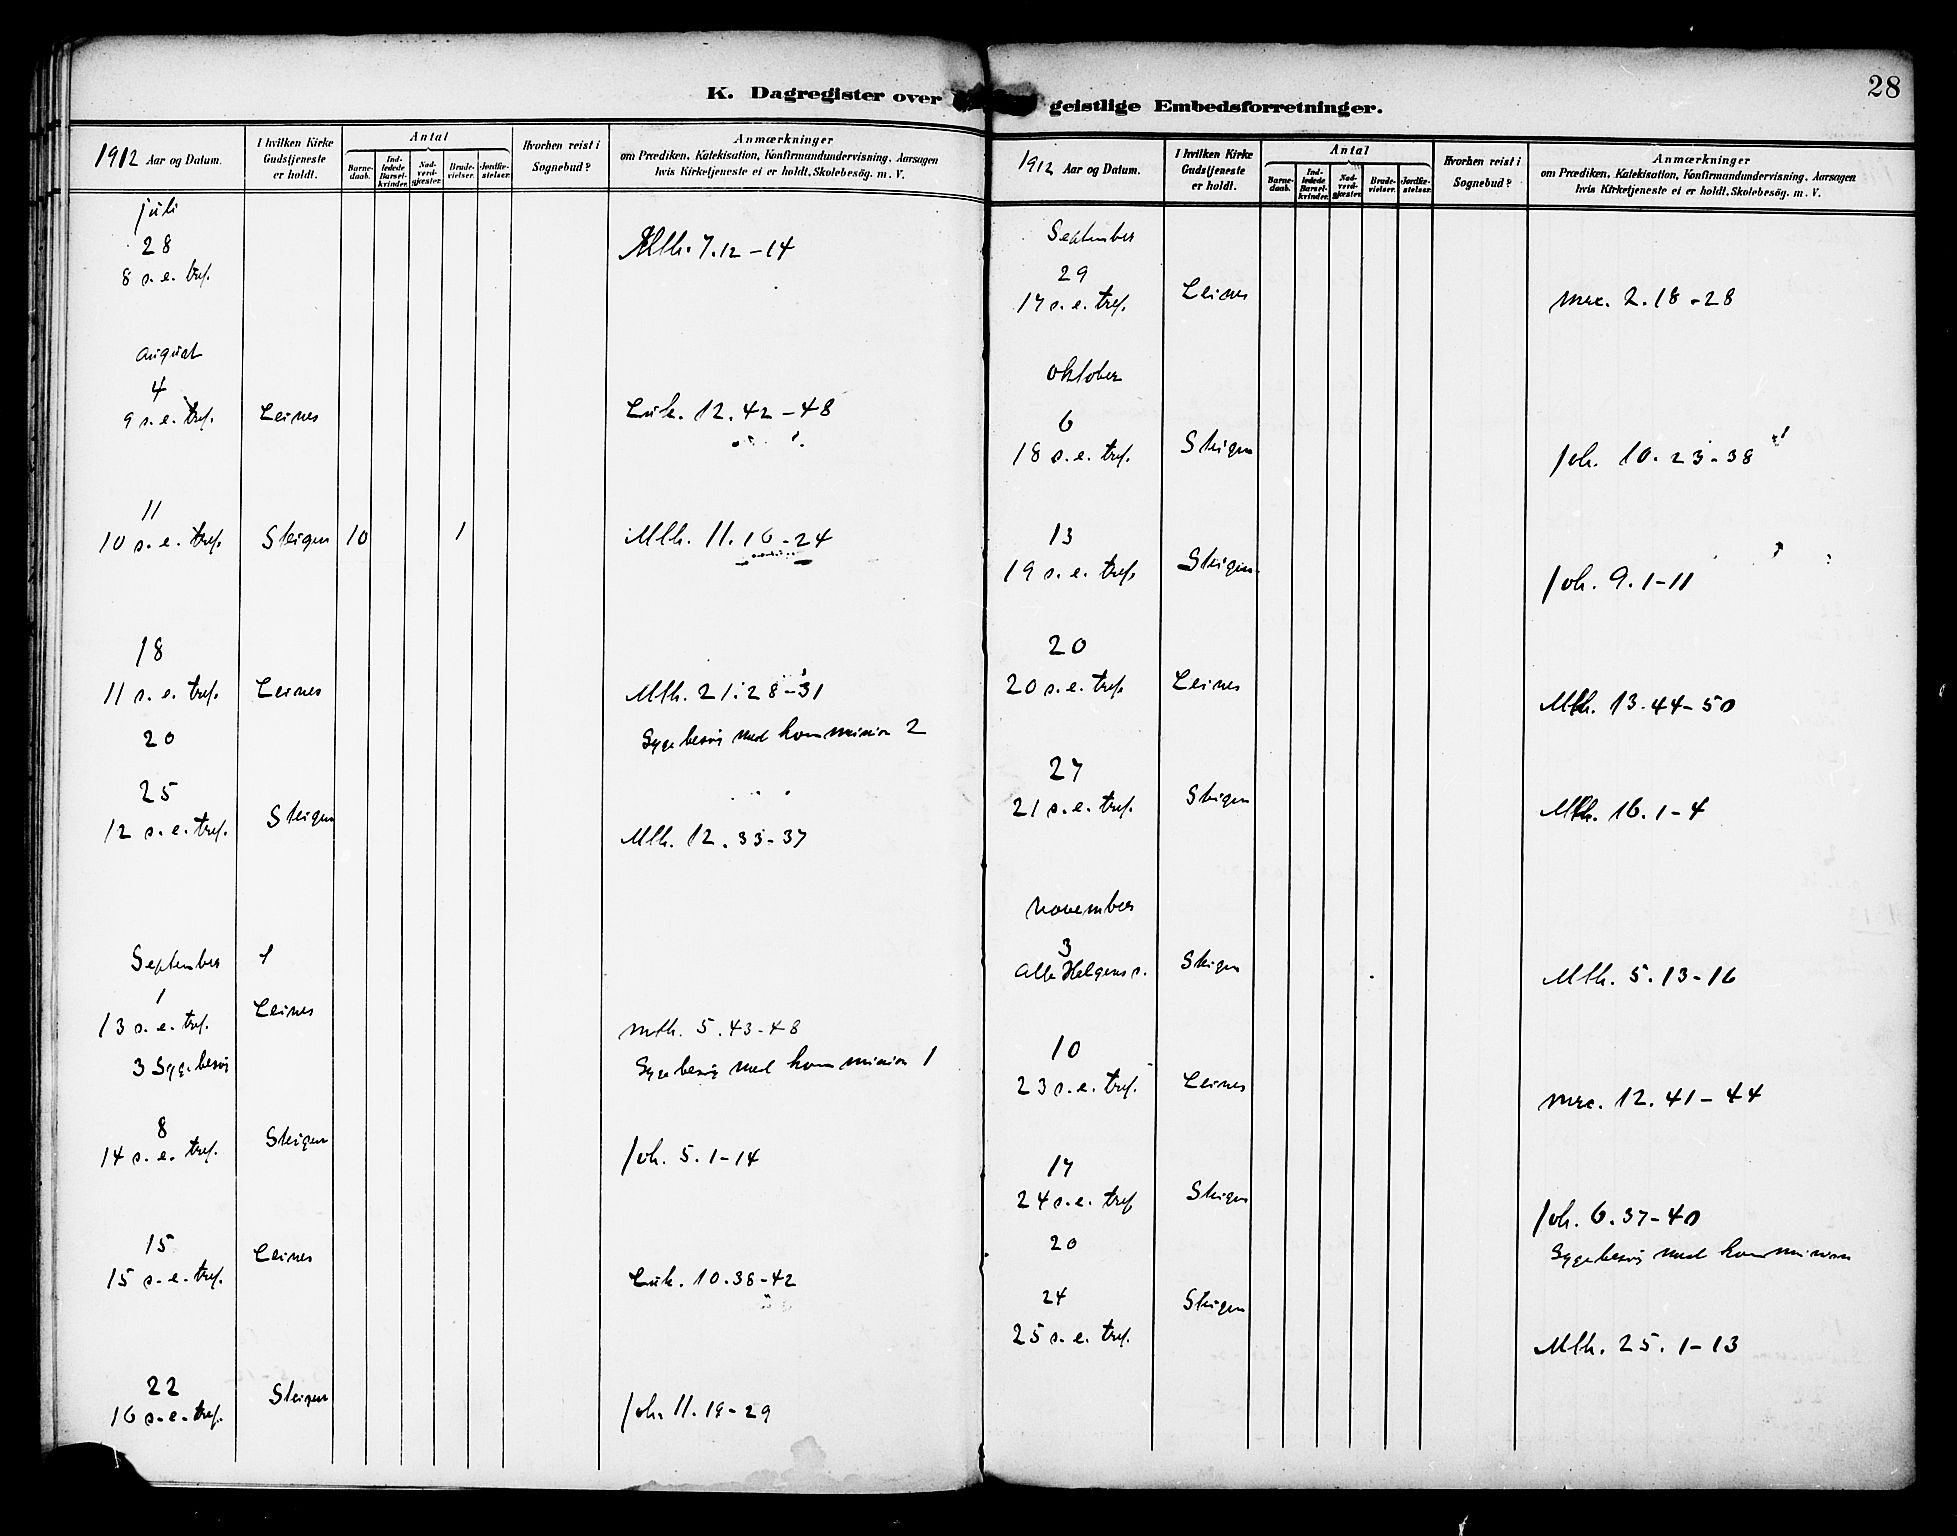 K. Dagregister over
1912 Aar og Datum.
I hvilken Kirke Gudstjeneste er holdt.
Antal
Barne-daab.
Ind-ledede Barsel-kvinder.
Nad-verd-gjæster.
Brude-vielser.
Jordfæ-stelser.
Hvorhen reist i Sognebud?
Anmærkninger
om Prædiken, Katekisation, Konfirmandundervisning, Aarsagen
hvis Kirketjeneste ei er holdt, Skolebesög. m. V.
juli
28 Mth. 7.12-14
8 s.e. tref.
august
4
9 s.e. tref. Leines Luk. 12.42-48
11
10 s.e. tref. Steigen 10 1 Mth. 11.16-24
18
11 s.e. tref. Leines Mth. 21.28-31
20 Sygebesøg med kommunion 2
25
12 s.e. tref. Steigen Mth. 12.33-37
September
1
13 s.e. tref. Leines mth. 5.43-48
3 Sygebesøg Sygebesøg med kommunion 1
8
14 s.e. tref. Steigen Joh. 5.1-14
15
15 s.e. tref. Leines Luk. 10.38-42
22
16 s.e. tref. Steigen Joh. 11.19-29
geistlige Embedsforretninger.
28
1912 Aar og Datum.
I hvilken Kirke Gudstjeneste er holdt.
Antal
Barne-daab.
Ind-ledede Barsel-kvinder.
Nad-verd-gjæster.
Brude-vielser.
Jordfæ-stelser.
Hvorhen reist i Sognebud?
Anmærkninger
om Prædiken, Katekisation, Konfirmandundervisning, Aarsagen
hvis Kirketjeneste ei er holdt, Skolebesög. m. V.
September
29
17 s.e. tref. Leines mrc. 2.18-28
oktober
6
18 s.e. tref. Steigen Joh. 10.23-38
13
19 s.e. tref. Steigen Joh. 9.1-11
20
20 s.e. tref. Leines Mth. 13.44-50
27
21 s.e. tref. Steigen Mth. 16.1-4
november
3
Alle Helgens s. Steigen Mth. 5.13-16
10
23 s.e. tref. Leines mrc. 12.41-44
17
24 s.e. tref Steigen Joh. 6.37-40
20 Sygebesøg med kommunion
24 Steigen
25 s.e. tref. Mth. 25.1-13